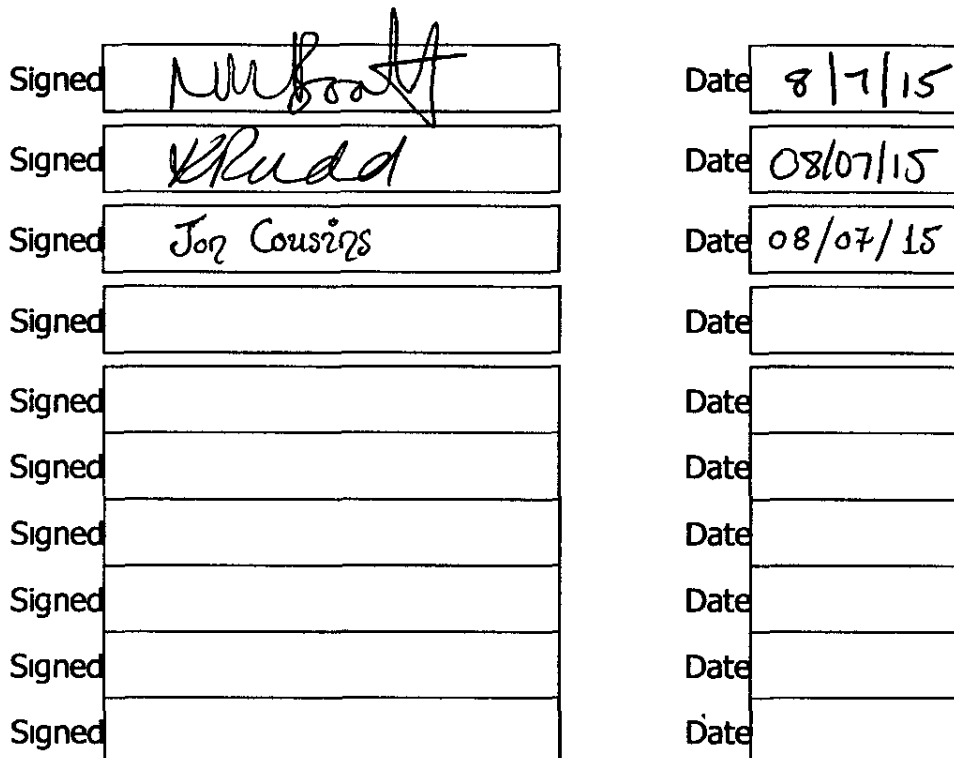 Signed Date 8/7/15
Signed KRudd Date 08/07/15
Signed Jon Cousins Date 08/07/15
Signed Date
Signed Date
Signed Date
Signed Date
Signed Date
Signed Date
Signed Date